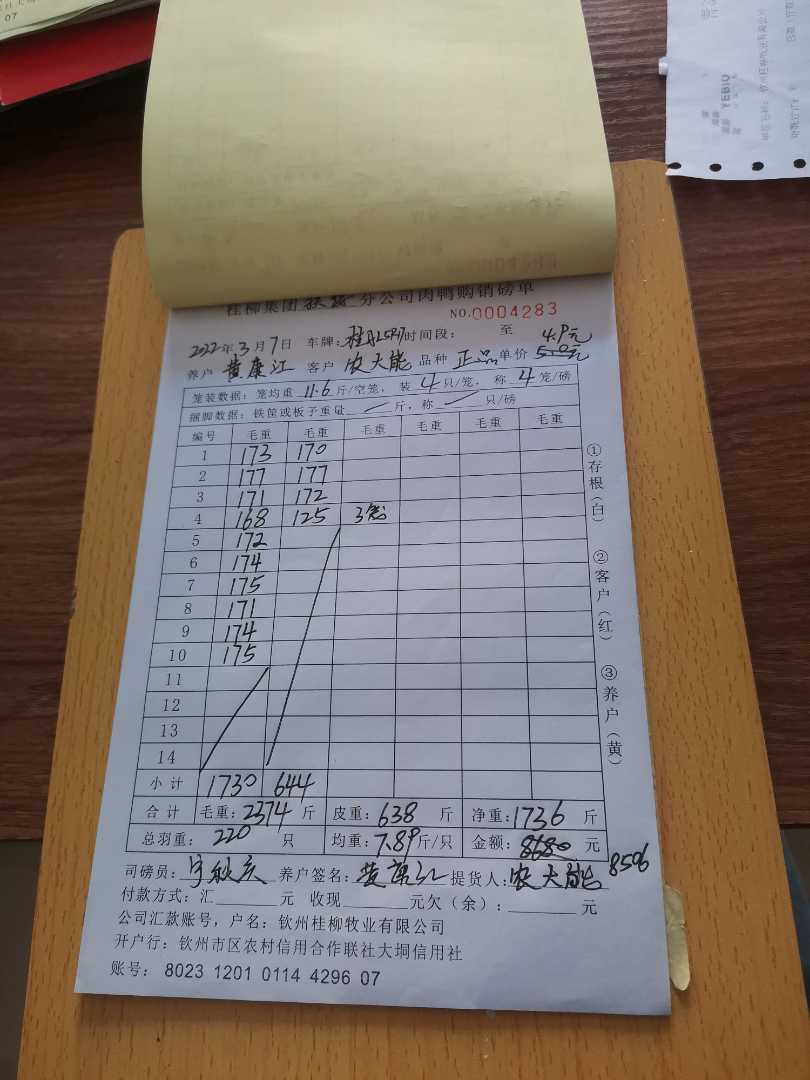 07
YEBIO
桂柳集团扶绥分公司肉鸭购销磅单
NO.0004283
2022年3月7日 车牌: 时间段: 至
4.9元
养户 黄康江 客户 农大能 品种 正品 单价 5.0元
笼装数据: 笼均重 11.6 斤/空笼, 装 4 只/笼, 称 4 笼/磅
捆脚数据: 铁筐或板子重量 / 斤, 称 / 只/磅
编号 毛重 毛重 毛重 毛重 毛重 毛重
1 173 170
2 177 177
3 171 172
4 168 125 3笼
5 172
6 174
7 175
8 171
9 174
10 175
11
12
13
14
小计 1730 644
合计 毛重: 2374 斤 皮重: 638 斤 净重: 1736 斤
总羽重: 220 只 均重: 7.89 斤/只 金额: 8680 元
8506
司磅员: 养户签名: 黄康江 提货人: 农大能
付款方式: 汇 元 收现 元欠(余): 元
公司汇款账号, 户名: 钦州桂柳牧业有限公司
开户行: 钦州市区农村信用合作联社大垌信用社
账号: 8023 1201 0114 4296 07
①存根(白)
②客户(红)
③养户(黄)